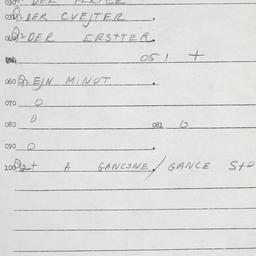 030 DER
031 DER CVEJTER .
040 DER ERSTTER.
050 051 +
060 EJN MINUT .
070 0
080 0 081 0
090 0 .
100 + A GANCSNE / GANCE StO